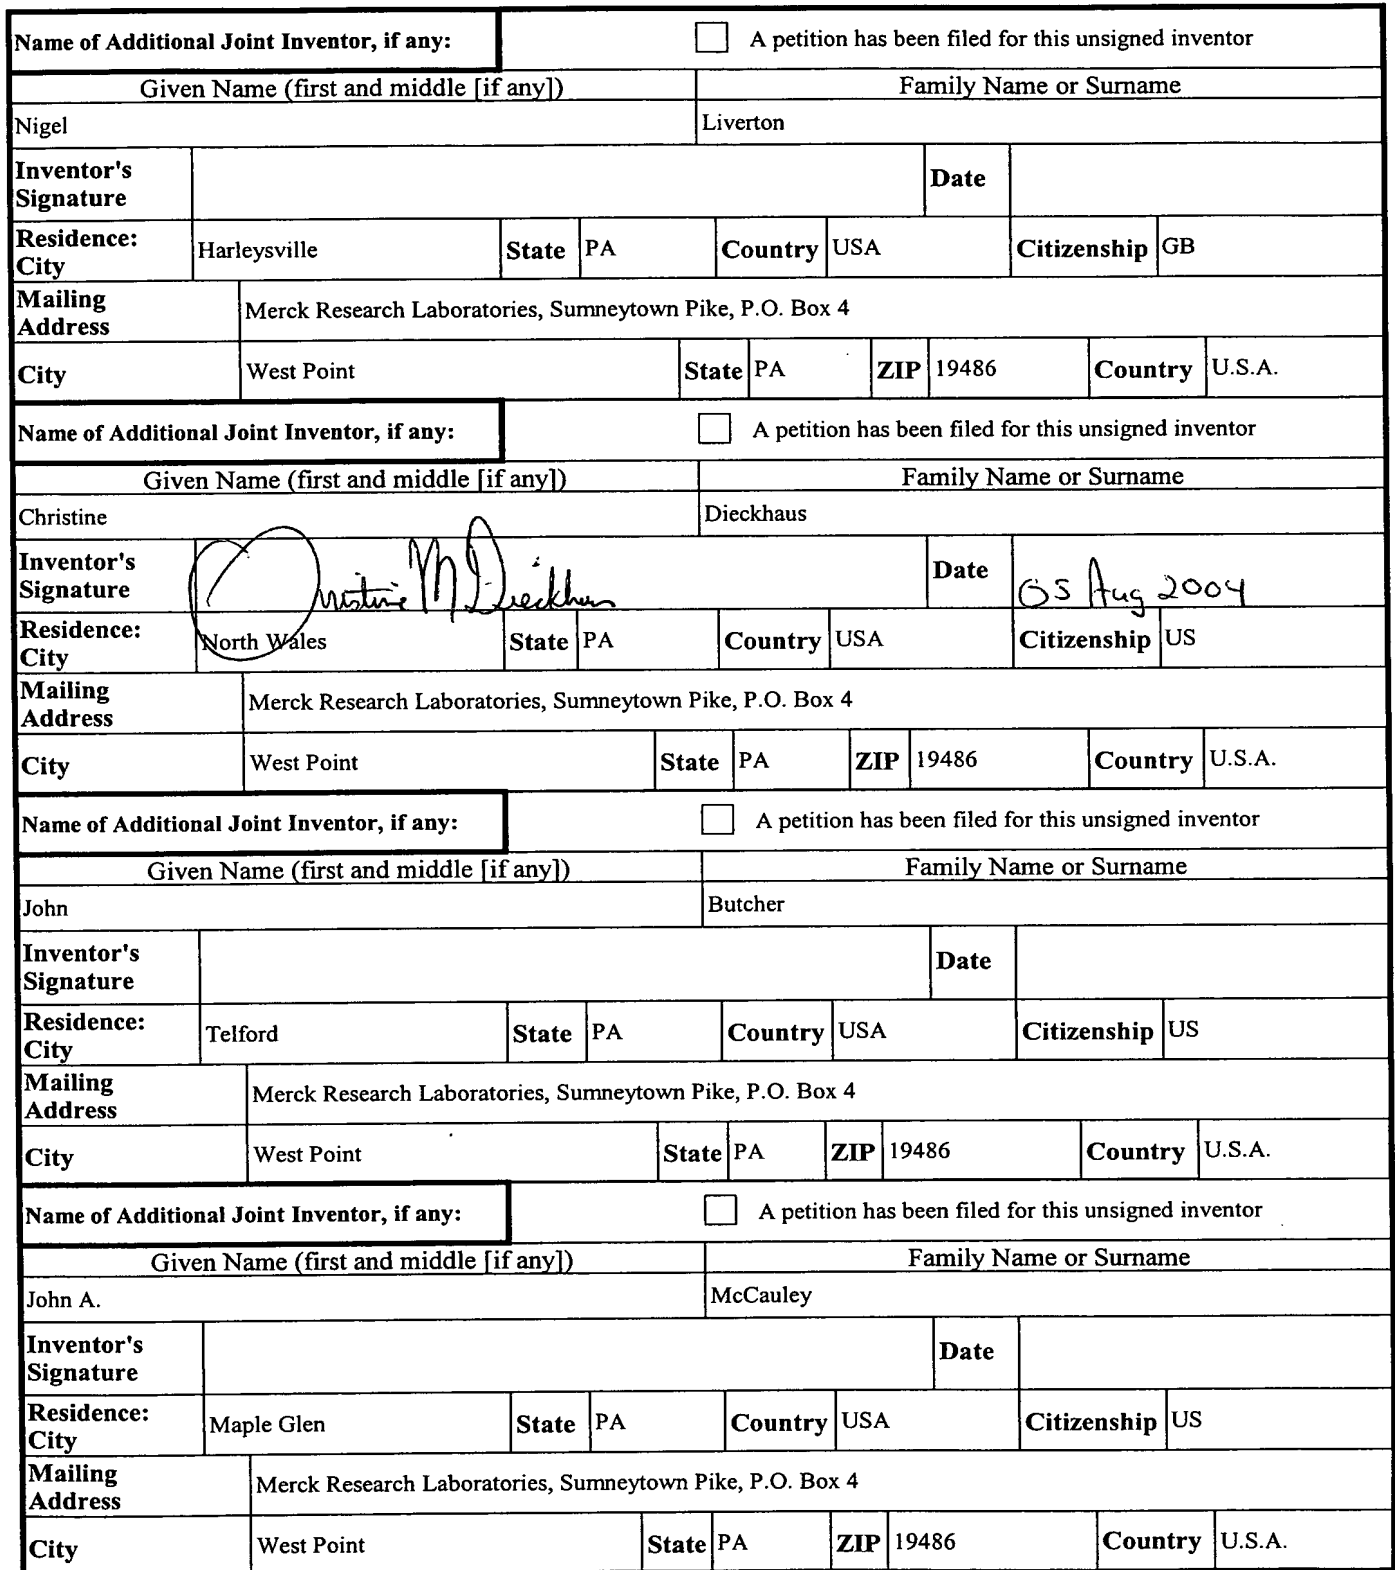 Name of Additional Joint Inventor, if any: A petition has been filed for this unsigned inventor
Given Name (first and middle [if any]) Family Name or Surname
Nigel Liverton
Inventor's Signature Date
Residence: City Harleysville State PA Country USA Citizenship GB
Mailing Address Merck Research Laboratories, Sumneytown Pike, P.O. Box 4
City West Point State PA ZIP 19486 Country U.S.A.
Name of Additional Joint Inventor, if any: A petition has been filed for this unsigned inventor
Given Name (first and middle [if any]) Family Name or Surname
Christine Dieckhaus
Inventor's Signature Christine M Dieckhaus Date 05 Aug 2004
Residence: City North Wales State PA Country USA Citizenship US
Mailing Address Merck Research Laboratories, Sumneytown Pike, P.O. Box 4
City West Point State PA ZIP 19486 Country U.S.A.
Name of Additional Joint Inventor, if any: A petition has been filed for this unsigned inventor
Given Name (first and middle [if any]) Family Name or Surname
John Butcher
Inventor's Signature Date
Residence: City Telford State PA Country USA Citizenship US
Mailing Address Merck Research Laboratories, Sumneytown Pike, P.O. Box 4
City West Point State PA ZIP 19486 Country U.S.A.
Name of Additional Joint Inventor, if any: A petition has been filed for this unsigned inventor
Given Name (first and middle [if any]) Family Name or Surname
John A. McCauley
Inventor's Signature Date
Residence: City Maple Glen State PA Country USA Citizenship US
Mailing Address Merck Research Laboratories, Sumneytown Pike, P.O. Box 4
City West Point State PA ZIP 19486 Country U.S.A.